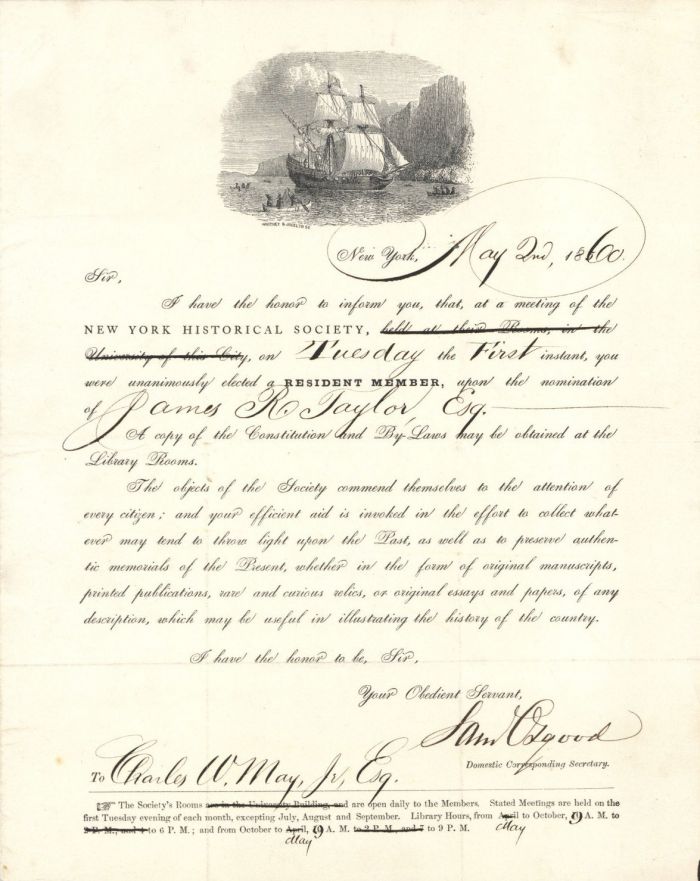 New York, May 2nd, 1860.
Sir,
I have the honor to inform you, that, at a meeting of the
NEW YORK HISTORICAL SOCIETY, held at their Rooms, in the
University of this City, on Tuesday the First instant, you
were unanimously elected a RESIDENT MEMBER, upon the nomination
of James R. Taylor, Esq.
A copy of the Constitution and By-Laws may be obtained at the
Library Rooms.
The objects of the Society commend themselves to the attention of
every citizen; and your efficient aid is invoked in the effort to collect what-
ever may tend to throw light upon the Past, as well as to preserve authen-
tic memorials of the Present, whether in the form of original manuscripts,
printed publications, rare and curious relics, or original essays and papers, of any
description, which may be useful in illustrating the history of the country.
I have the honor to be, Sir,
Your Obedient Servant,
Sam Osgood
Domestic Corresponding Secretary.
To Charles W. May, Jr, Esq.
☞ The Society's Rooms are in the University Building, and are open daily to the Members. Stated Meetings are held on the
first Tuesday evening of each month, excepting July, August and September. Library Hours, from April to October, 9 A. M. to
2 P. M., and 4 to 6 P. M.; and from October to April, 9 A. M. to 2 P. M., and 7 to 9 P. M.
May
May